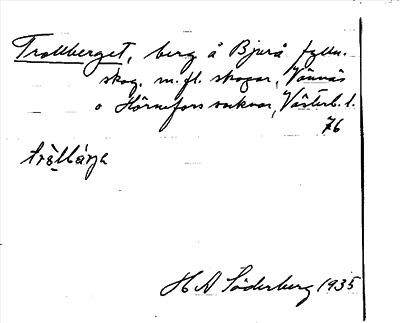 Trollberget, berg å Bjurå fylln.
skog. m. fl. skogar, Vännäs
o Hörnefors socknar, Västerb. l.
76
tròllbárja
H A Söderberg 1935